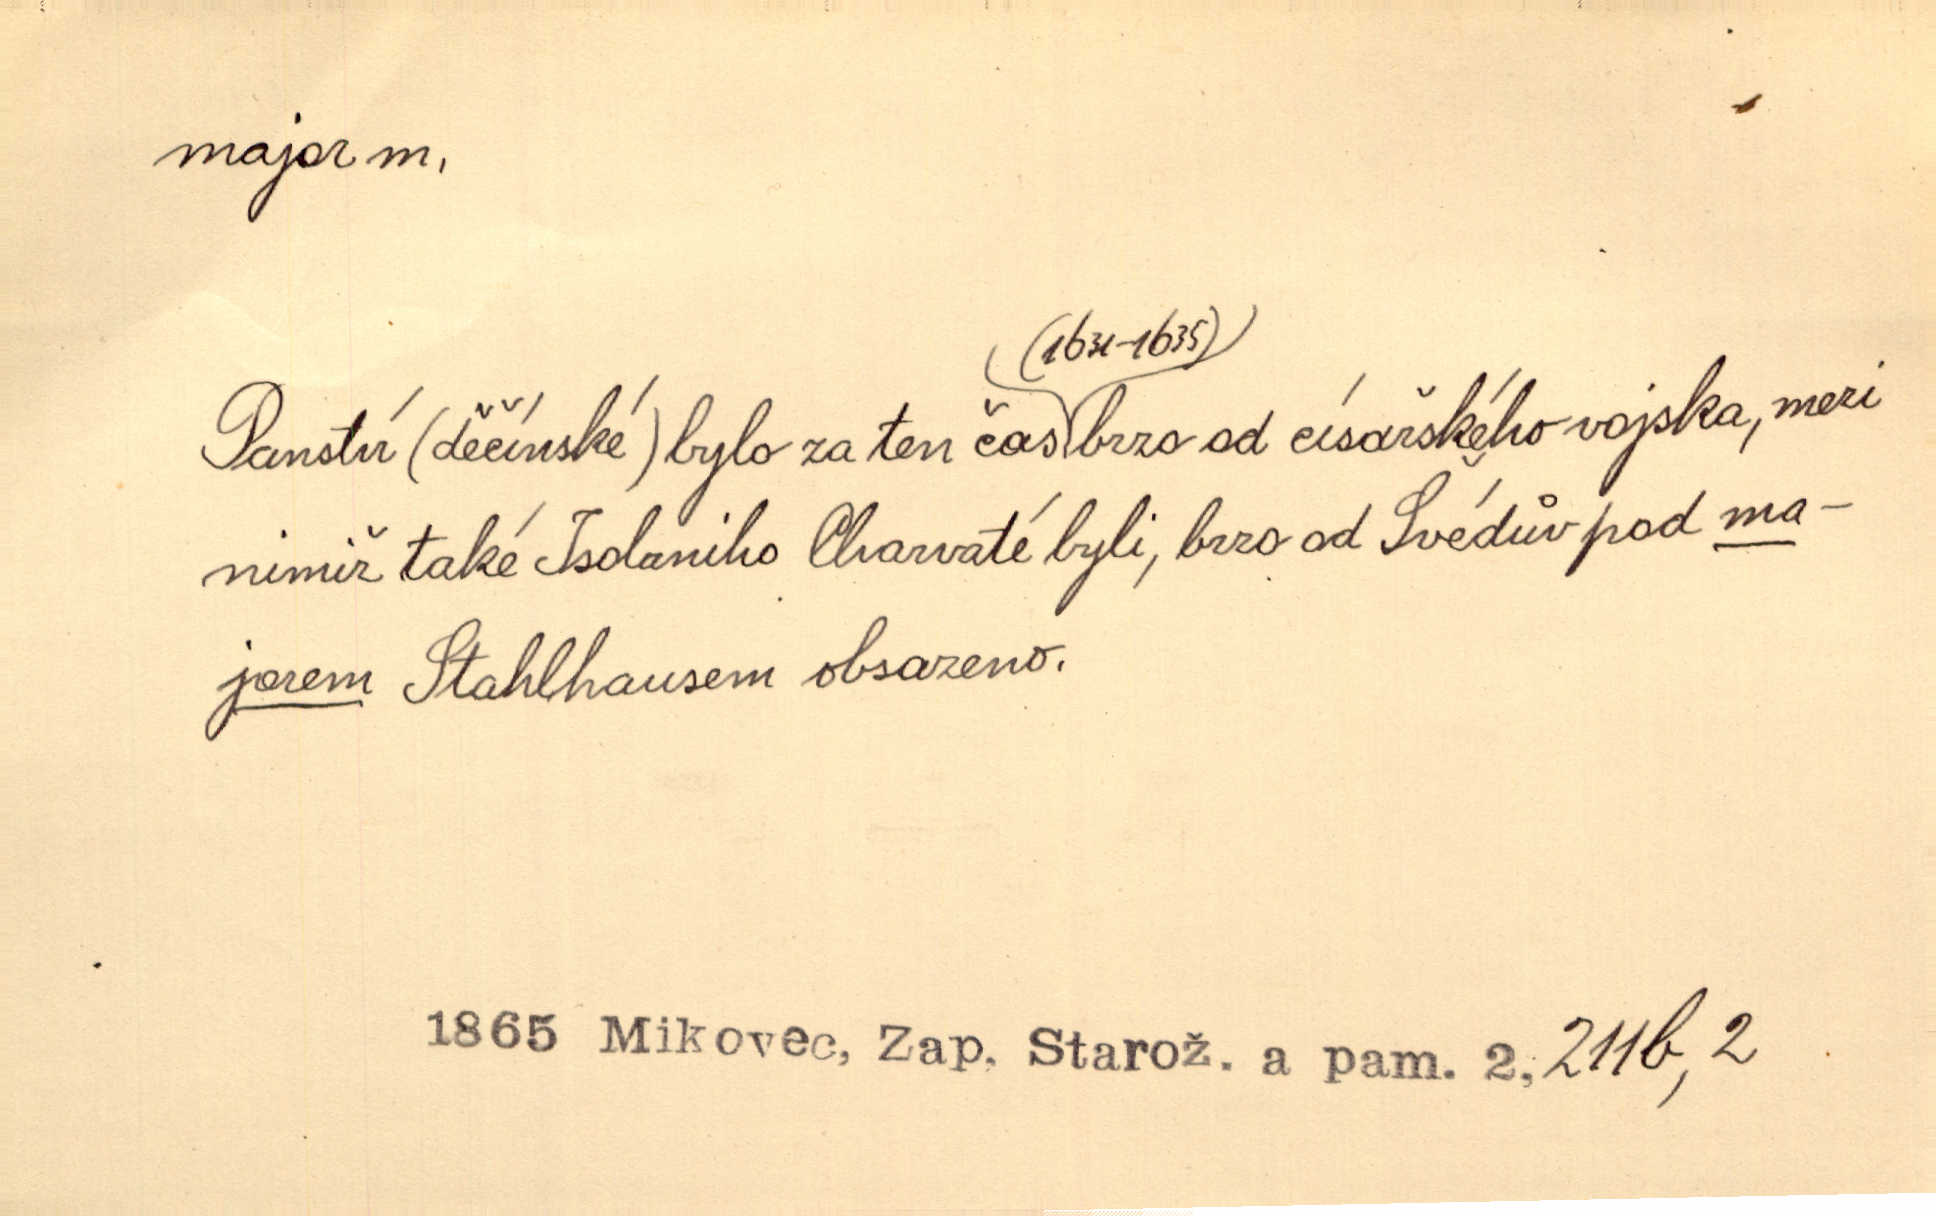 major m.
(1631-1635)
Panství (děčínské) bylo za ten čas brzo od císařského vojska, mezi
nimiž také Isolaniho Charvaté byli, brzo od Švédův pod ma-
jorem Stahlhausem obsazeno.
1865 Mikovec, Zap. Starož. a pam. 2, 211b, 2